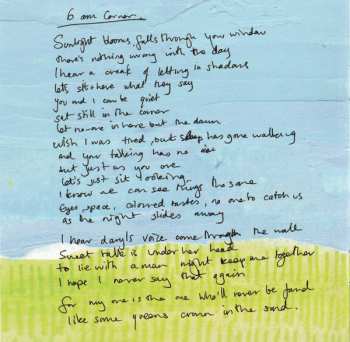 6 am Corner.
Sunlight blooms, falls through your window
there's nothing wrong into the day
I hear a creak of letting in shadows
let's sit + have what they say
you and I can be quiet
sat still in the corner
let no-one in here but the dawn
wish I was tired, but sleep has gone walking
and your talking has no
but just as you are
let's just sit
I know we can see things the same
Eyes, space, colored tastes, no one to catch us
as the night slides away
I hear daryl's voice come through the wall
Sweet talk is under her head
to lie with a man might keep me together
I hope I never say that again
for my one is the one who'll never be found
like some queens crown in the sand.